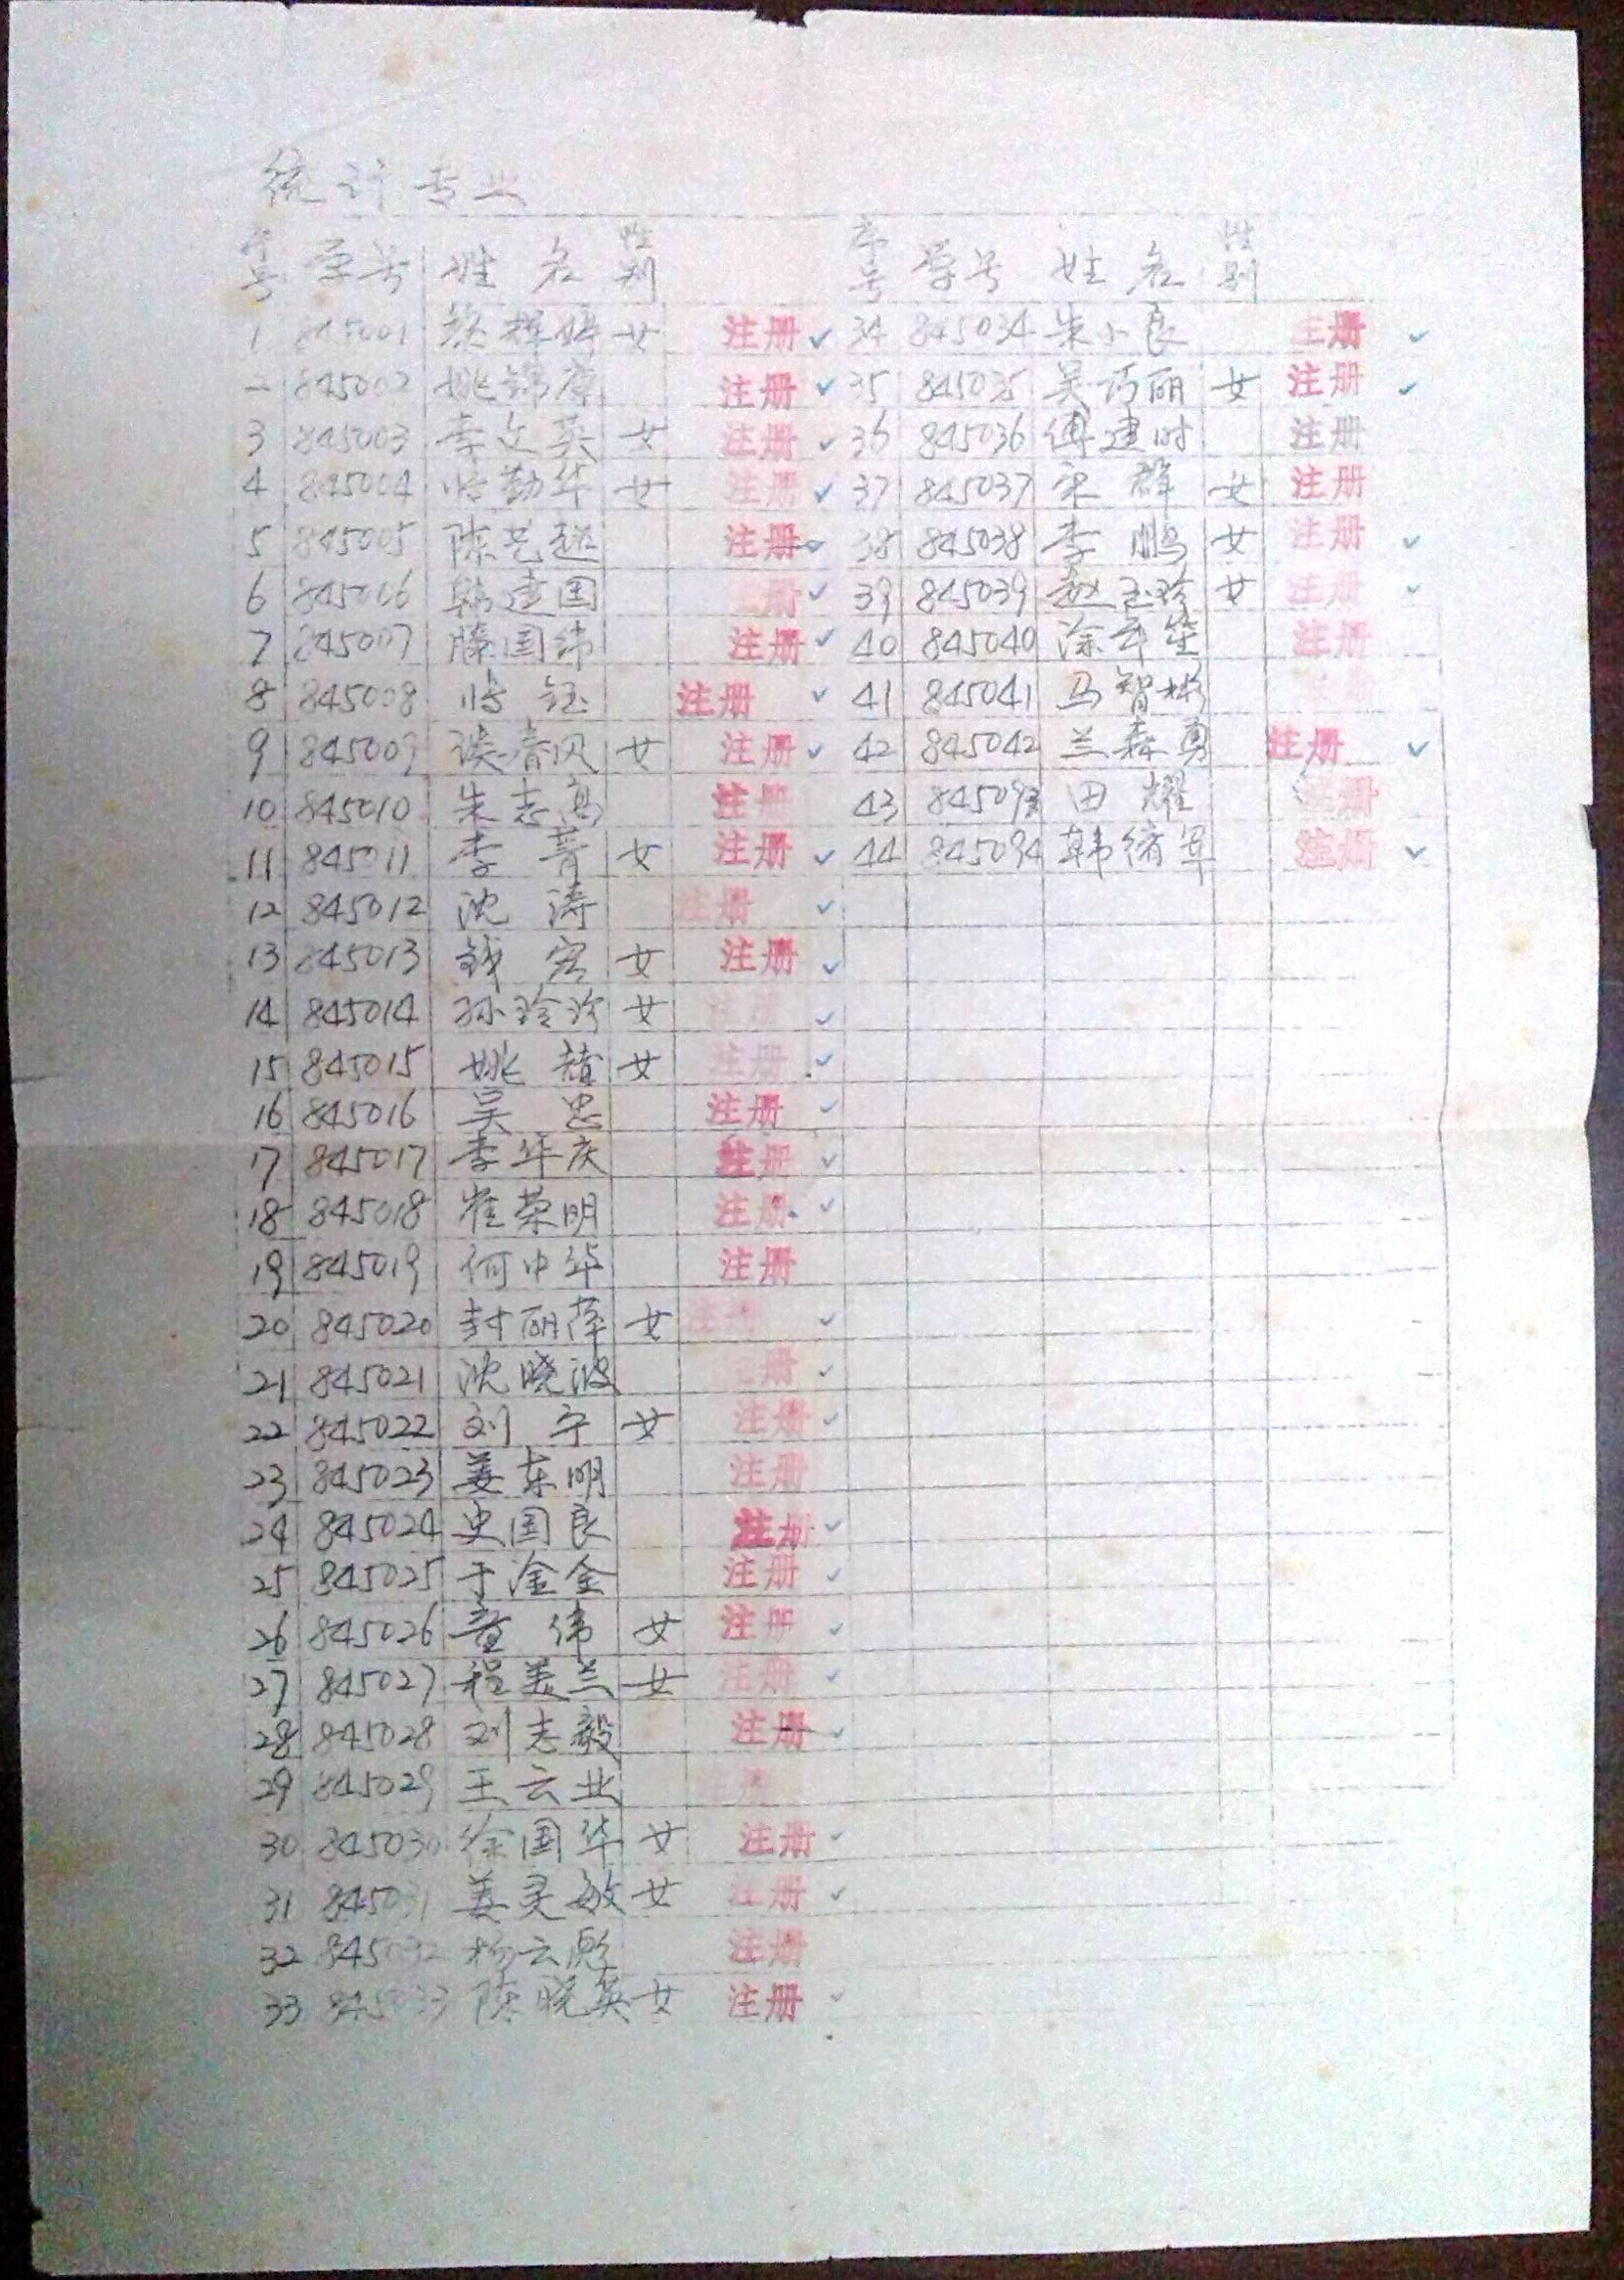 统计专业
序号 学号 姓名 性别
1 845001 女 注册
2 845002 姚锦康 注册
3 845003 李文英 女 注册
4 845004 勤华 女 注册
5 845005 陈艺超 注册
6 845006 韩建国 册
7 845007 滕国纬 注册
8 845008 钰 注册
9 845009 谈春风 女 注册
10 845010 朱志高 注册
11 845011 李菁 女 注册
12 845012 沈涛 注册
13 845013 钱 女 注册
14 845014 孙玲珍 女
15 845015 姚 女 注册
16 845016 吴忠 注册
17 845017 李年庆 注册
18 845018 崔荣明 注册
19 845019 何中华 注册
20 845020 封丽萍 女 注册
21 845021 沈晓波 册
22 845022 刘宁 女 注册
23 845023 姜东明 注册
24 845024 史国良 注册
25 845025 于淦金 注册
26 845026 童伟 女 注册
27 845027 程美兰 女 注册
28 845028 刘志毅 注册
29 845029 王云业
30 845030 徐国华 女 注册
31 845031 姜灵敏 女 注册
32 845032 杨云彪 注册
33 845033 陈晓英 女 注册
序号 学号 姓名 性别
34 845034 朱小良 注册
35 845035 吴巧丽 女 注册
36 845036 傅建时 注册
37 845037 宋群 女 注册
38 845038 李鹏 女 注册
39 845039 赵玉珍 女 注册
40 845040 涂平生 注册
41 845041 马智彬 注册
42 845042 兰森勇 注册
43 845093 田耀 注册
44 845094 韩绪军 注册